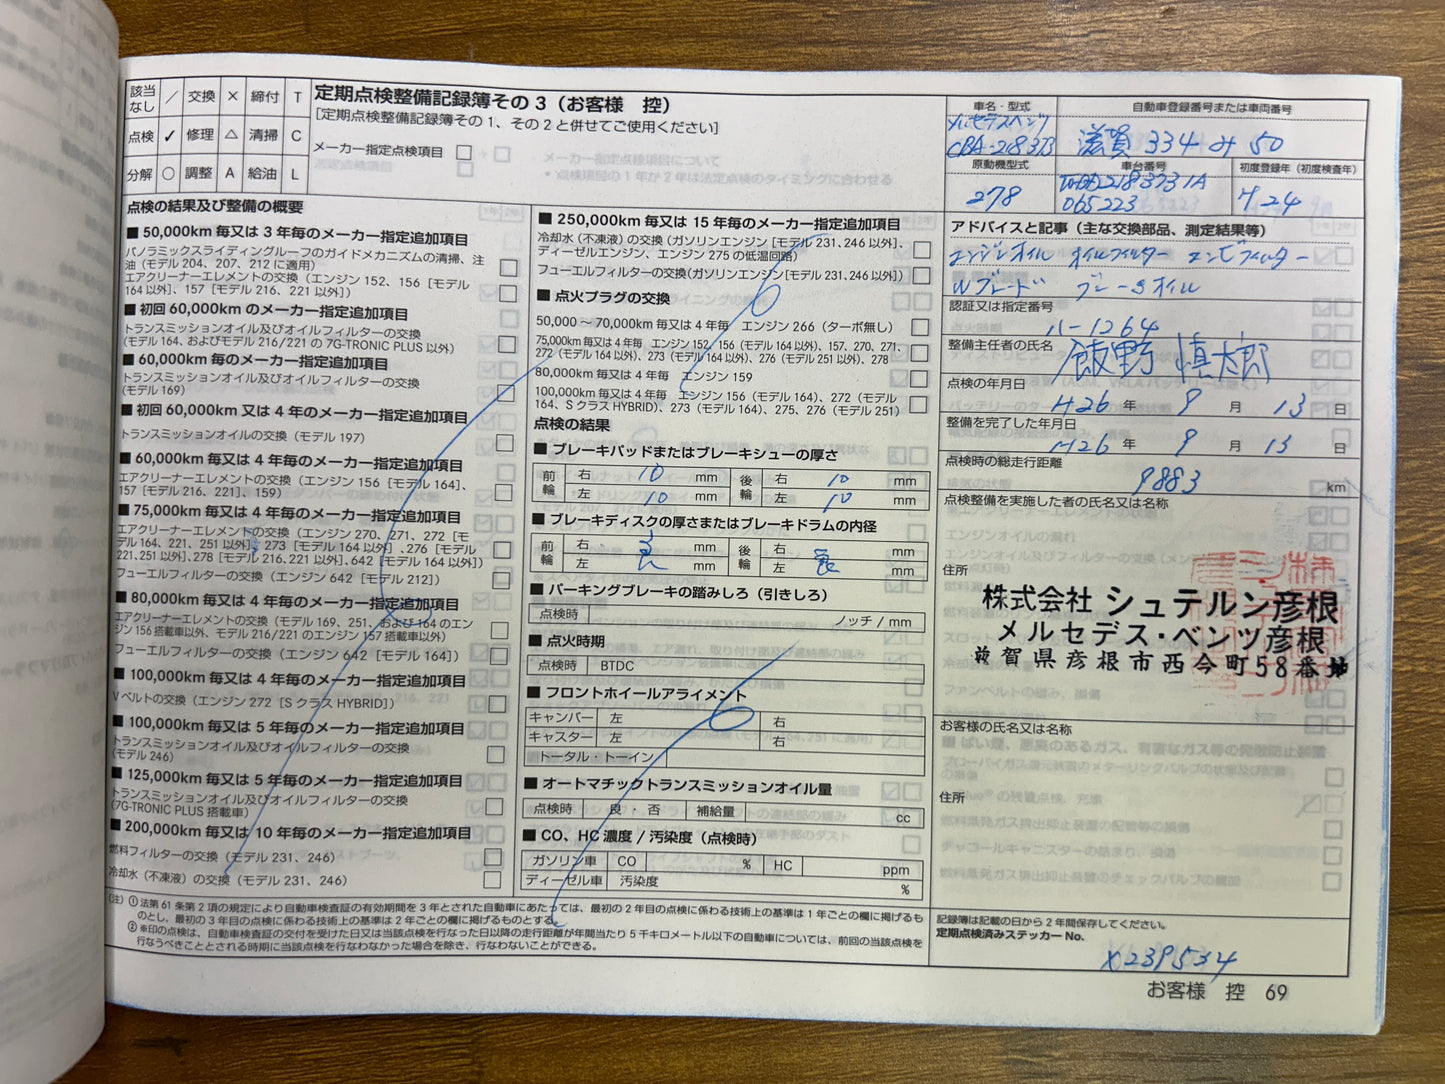 該当なし ／ 交換 × 締付 T
点検 ✓ 修理 △ 清掃 C
分解 ○ 調整 A 給油 L
定期点検整備記録簿その3（お客様　控）
［定期点検整備記録簿その1、その2と併せてご使用ください］
メーカー指定点検項目 □
点検の結果及び整備の概要
■ 50,000km 毎又は 3 年毎のメーカー指定追加項目
パノラミックスライディングルーフのガイドメカニズムの清掃、注
油（モデル 204、207、212 に適用）
エアクリーナーエレメントの交換（エンジン 152、156［モデル
164 以外］、157［モデル 216、221 以外］）
■ 初回 60,000km のメーカー指定追加項目
トランスミッションオイル及びオイルフィルターの交換
（モデル 164、およびモデル 216/221 の 7G-TRONIC PLUS 以外）
■ 60,000km 毎のメーカー指定追加項目
トランスミッションオイル及びオイルフィルターの交換
（モデル 169）
■ 初回 60,000km 又は 4 年のメーカー指定追加項目
トランスミッションオイルの交換（モデル 197）
■ 60,000km 毎又は 4 年毎のメーカー指定追加項目
エアクリーナーエレメントの交換（エンジン 156［モデル 164］、
157［モデル 216、221］、159）
■ 75,000km 毎又は 4 年毎のメーカー指定追加項目
エアクリーナーエレメントの交換（エンジン 270、271、272［モ
デル 164、221、251 以外］、273［モデル 164 以外］、276［モデル
221、251 以外］、278［モデル 216、221 以外］、642［モデル 164 以外］）
フューエルフィルターの交換（エンジン 642［モデル 212］）
■ 80,000km 毎又は 4 年毎のメーカー指定追加項目
エアクリーナーエレメントの交換（モデル 169、251、および 164 のエン
ジン 156 搭載車以外、モデル 216/221 のエンジン 157 搭載車以外）
フューエルフィルターの交換（エンジン 642［モデル 164］）
■ 100,000km 毎又は 4 年毎のメーカー指定追加項目
V ベルトの交換（エンジン 272［S クラス HYBRID］）
■ 100,000km 毎又は 5 年毎のメーカー指定追加項目
トランスミッションオイル及びオイルフィルターの交換
（モデル 246）
■ 125,000km 毎又は 5 年毎のメーカー指定追加項目
トランスミッションオイル及びオイルフィルターの交換
（7G-TRONIC PLUS 搭載車）
■ 200,000km 毎又は 10 年毎のメーカー指定追加項目
燃料フィルターの交換（モデル 231、246）
冷却水（不凍液）の交換（モデル 231、246）
■ 250,000km 毎又は 15 年毎のメーカー指定追加項目
冷却水（不凍液）の交換（ガソリンエンジン［モデル 231、246 以外］、
ディーゼルエンジン、エンジン 275 の低温回路）
フューエルフィルターの交換（ガソリンエンジン［モデル 231、246 以外］）
■ 点火プラグの交換
50,000 ～ 70,000km 毎又は 4 年毎　エンジン 266（ターボ無し）
75,000km 毎又は 4 年毎　エンジン 152、156（モデル 164 以外）、157、270、271、
272（モデル 164 以外）、273（モデル 164 以外）、276（モデル 251 以外）、278
80,000km 毎又は 4 年毎　エンジン 159
100,000km 毎又は 4 年毎　エンジン 156（モデル 164）、272（モデル
164、S クラス HYBRID）、273（モデル 164）、275、276（モデル 251）
点検の結果
■ ブレーキパッドまたはブレーキシューの厚さ
前輪 右 10 mm 後輪 右 10 mm
左 10 mm 左 10 mm
■ ブレーキディスクの厚さまたはブレーキドラムの内径
前輪 右 mm 後輪 右 mm
左 良 mm 左 良 mm
■ パーキングブレーキの踏みしろ（引きしろ）
点検時 ノッチ / mm
■ 点火時期
点検時 BTDC
■ フロントホイールアライメント
キャンバー 左 右
キャスター 左 右
トータル・トーイン
■ オートマチックトランスミッションオイル量
点検時 良 ・ 否 補給量 cc
■ CO、HC 濃度 / 汚染度（点検時）
ガソリン車 CO % HC ppm
ディーゼル車 汚染度 %
車名・型式
メルセデスベンツ
CBA-218373
自動車登録番号または車両番号
滋賀 334 み 50
原動機型式
278
車台番号
WDD2183731A
065223
初度登録年（初度検査年）
H24
アドバイスと記事（主な交換部品、測定結果等）
エンジンオイル オイルフィルター エンビフィルター
Wブレード ブレーキオイル
認証又は指定番号
八-1264
整備主任者の氏名
飯野 慎太郎
点検の年月日
H26 年 9 月 13 日
整備を完了した年月日
H26 年 9 月 13 日
点検時の総走行距離
9883 km
点検整備を実施した者の氏名又は名称
住所
株式会社 シュテルン彦根
メルセデス・ベンツ彦根
滋賀県彦根市西今町58番地
お客様の氏名又は名称
住所
（注）① 法第 61 条第 2 項の規定により自動車検査証の有効期間を 3 年とされた自動車にあたっては、最初の 2 年目の点検に係わる技術上の基準は 1 年ごとの欄に掲げるも
のとし、最初の 3 年目の点検に係わる技術上の基準は 2 年ごとの欄に掲げるものとする。
② ※印の点検は、自動車検査証の交付を受けた日又は当該点検を行なった日以降の走行距離が年間当たり 5 千キロメートル以下の自動車については、前回の当該点検を
行なうべきこととされる時期に当該点検を行なわなかった場合を除き、行なわないことができる。
記録簿は記載の日から 2 年間保存してください。
定期点検済みステッカー No.
X239534
お客様　控　69